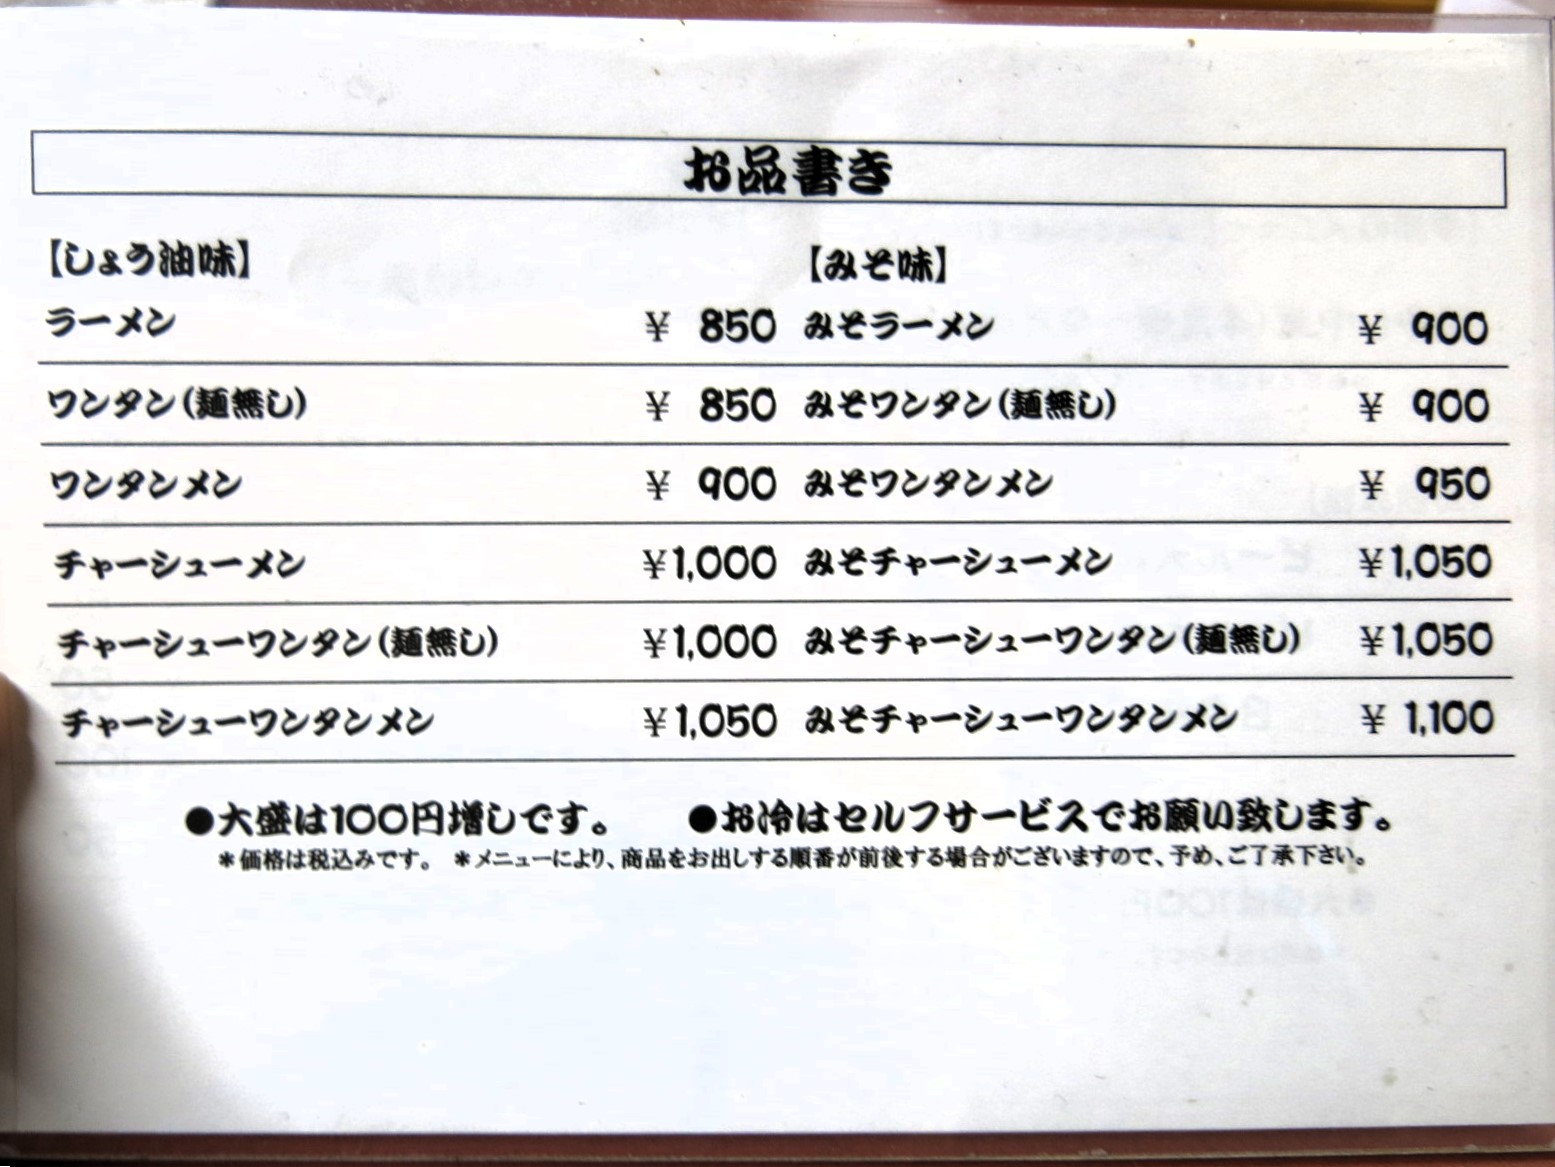 お品書き
【しょう油味】
ラーメン ¥ 850
ワンタン(麺無し) ¥ 850
ワンタンメン ¥ 900
チャーシューメン ¥1,000
チャーシューワンタン(麺無し) ¥1,000
チャーシューワンタンメン ¥1,050
【みそ味】
みそラーメン ¥ 900
みそワンタン(麺無し) ¥ 900
みそワンタンメン ¥ 950
みそチャーシューメン ¥1,050
みそチャーシューワンタン(麺無し) ¥1,050
みそチャーシューワンタンメン ¥ 1,100
●大盛は100円増しです。 ●お冷はセルフサービスでお願い致します。
*価格は税込みです。 *メニューにより、商品をお出しする順番が前後する場合がございますので、予め、ご了承下さい。